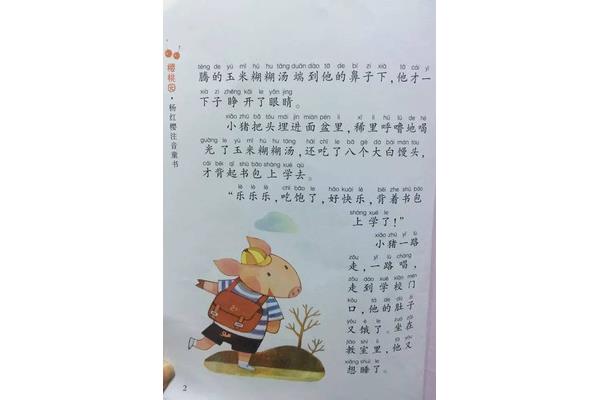 樱桃园·杨红樱注音童书
téng de yù mǐ hú hu tāng duān dào tā de bí zi xià tā cái yí
腾的玉米糊糊汤端到他的鼻子下，他才一
xià zi zhēng kāi le yǎn jing
下子睁开了眼睛。
xiǎo zhū bǎ tóu mái jìn miàn pén lǐ xī lǐ hū lū de hē
小猪把头埋进面盆里，稀里呼噜地喝
guāng le yù mǐ hú hu tāng hái chī le bā gè dà bái mán tou
光了玉米糊糊汤，还吃了八个大白馒头，
cái bēi qǐ shū bāo shàng xué qù
才背起书包上学去。
lè lè lè chī bǎo le hǎo kuài lè bēi zhe shū bāo
“乐乐乐，吃饱了，好快乐，背着书包
shàng xué le
上学了！”
xiǎo zhū yí lù
小猪一路
zǒu yí lù chàng
走，一路唱，
zǒu dào xué xiào mén
走到学校门
kǒu tā de dù zi
口，他的肚子
yòu è le zuò zài
又饿了。坐在
jiào shì lǐ tā yòu
教室里，他又
xiǎng shuì le
想睡了。
2